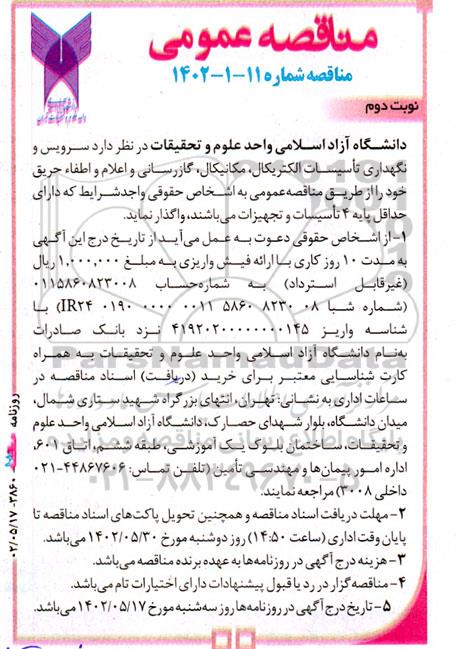 مناقصه عمومی
مناقصه شماره ۱۱-۱-۱۴۰۲
نوبت دوم
دانشگاه آزاد اسلامی واحد علوم و تحقیقات در نظر دارد سرویس و
نگهداری تأسیسات الکتریکال، مکانیکال، گازرسانی و اعلام و اطفاء حریق
خود را از طریق مناقصه عمومی به اشخاص حقوقی واجد شرایط که دارای
حداقل پایه ۴ تأسیسات و تجهیزات می‌باشند، واگذار نماید.
۱- از اشخاص حقوقی دعوت به عمل می‌آید از تاریخ درج این آگهی
به مدت ۱۰ روز کاری با ارائه فیش واریزی به مبلغ ۱,۰۰۰,۰۰۰ ریال
(غیرقابل استرداد) به شماره‌حساب ۰۱۱۵۸۶۰۸۲۳۰۰۸
(شماره شبا ۰۸ ۸۲۳۰ ۵۸۶۰ ۰۰۱۱ ۰۰۰۰ ۰۱۹۰ IR۲۴) با
شناسه واریز ۴۱۹۲۰۲۰۰۰۰۰۰۰۰۱۴۵ نزد بانک صادرات
به‌نام دانشگاه آزاد اسلامی واحد علوم و تحقیقات به همراه
کارت شناسایی معتبر برای خرید (دریافت) اسناد مناقصه در
ساعات اداری به نشانی: تهران، انتهای بزرگراه شهید ستاری شمال،
میدان دانشگاه، بلوار شهدای حصارک، دانشگاه آزاد اسلامی واحد علوم
و تحقیقات، ساختمان بلوک یک آموزشی، طبقه ششم، اتاق ۶۰۱،
اداره امور پیمان‌ها و مهندسی تأمین (تلفن تماس: ۴۴۸۶۷۶۰۶-۰۲۱
داخلی ۳۰۰۸) مراجعه نمایند.
۲- مهلت دریافت اسناد مناقصه و همچنین تحویل پاکت‌های اسناد مناقصه تا
پایان وقت اداری (ساعت ۱۴:۵۰) روز دوشنبه مورخ ۱۴۰۲/۰۵/۳۰ می‌باشد.
۳- هزینه درج آگهی در روزنامه‌ها به عهده برنده مناقصه می‌باشد.
۴- مناقصه‌گزار در رد یا قبول پیشنهادات دارای اختیارات تام می‌باشد.
۵- تاریخ درج آگهی در روزنامه‌ها روز سه‌شنبه مورخ ۱۴۰۲/۰۵/۱۷ می‌باشد.
روزنامه ۳۸۶۰-۰۲/۰۵/۱۷
ParsNamadData
۰۲۱-۸۸۳۴۹۶۷۰-۵